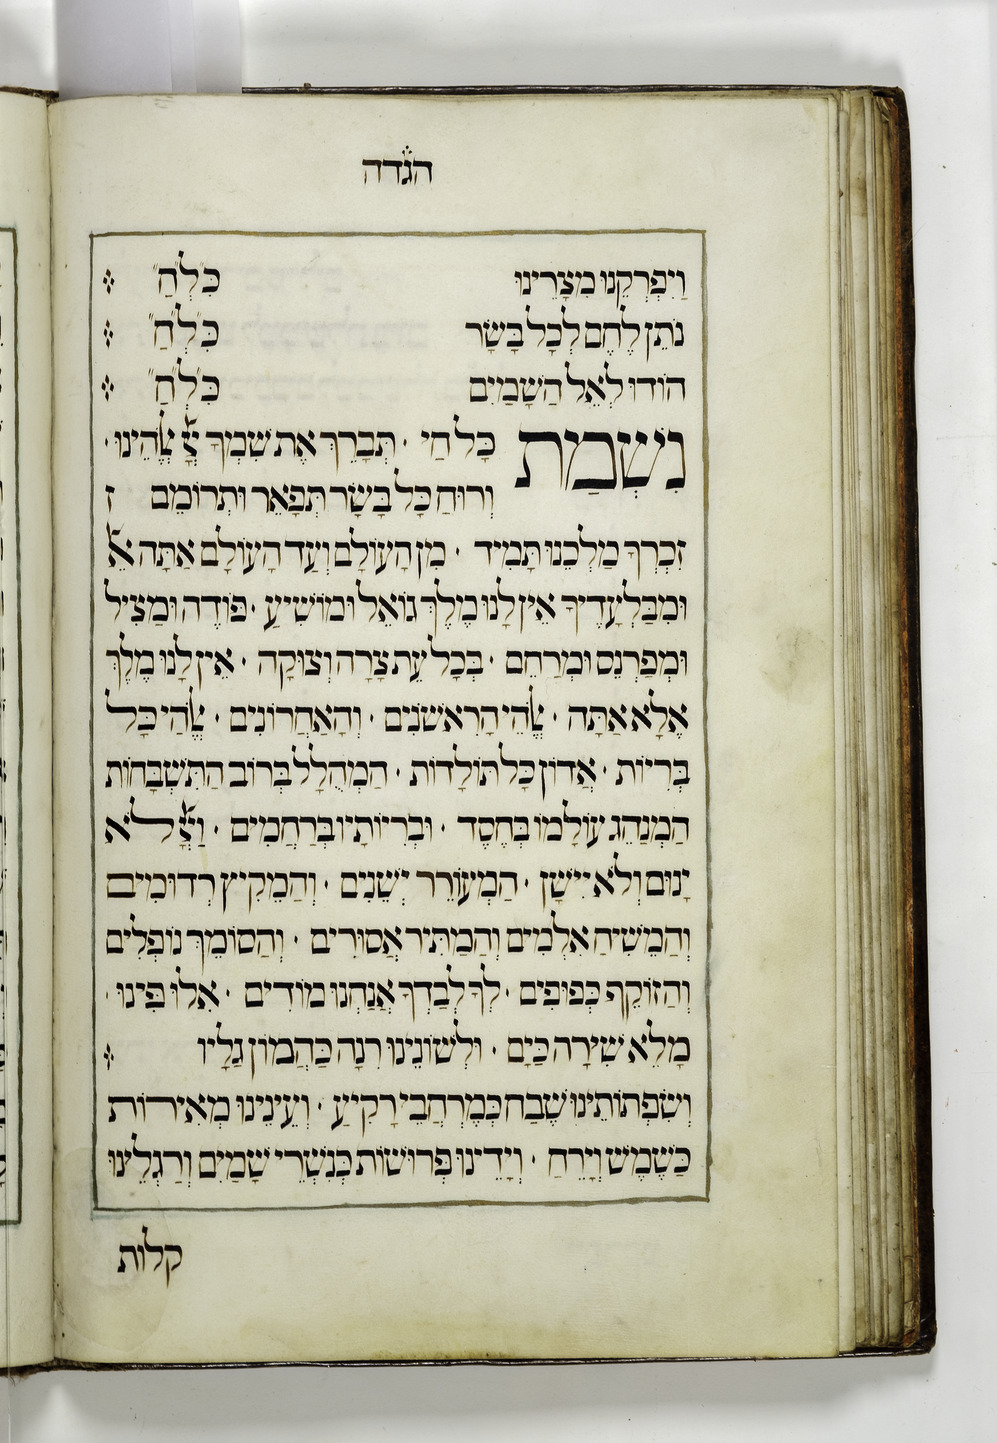 הגדה
וַיִפְרְקֵנוּ מִצָרֵינוּ כִּלְ״חַ״
נֹתֵן לֶחֶם לְכָל בָּשָׂר כִּ״לְ״חַ״
הוֹדוּ לְאֵל הַשָׁמַיִם כִּ״לְ״חַ״
נִשְׁמַת כָּל חַי · תְּבָרֵךְ אֶת שִׁמְךָ יְיָ אֱﭏהֵינוּ ·
וְרוּחַ כָּל בָּשָׂר תְּפָאֵר וּתְרוֹמֵם ז
זִכְרְךָ מַלְכֵנוּ תָּמִיד · מִן הָעוֹלָם וְעַד הָעוֹלָם אַתָּה אֵל
וּמִבַּלְעָדֶיךָ אֵין לָנוּ מֶלֶךְ גוֹאֵל וּמוֹשִׁיעַ · פּוֹדֶה וּמַצִיל
וּמְפַרְנֵס וּמְרַחֵם · בְּכָל עֵת צָרָה וְצוּקָה · אֵין לָנוּ מֶלֶךְ
אֶלָא אַתָּה · ﭏהֵי הָרִאשׁנִים · וְהָאַחֲרוֹנִים · ﭏהַי כָּל
בְּרִיוֹת · אֲדוֹן כָּל תּוֹלָדוֹת · הַמְהֻלָל בְּרוֹב הַתִּשְׁבָּחוֹת
הַמְנַהֵג עוֹלָמוֹ בְּחֶסֶד · וּבְרִיוֹתָיו בְּרַחֲמִים · וַיְיָ לֹא
יָנוּם וְלֹא יִישָׁן · הַמְעוֹרֵר יְשֵׁנִים · וְהַמֵקִיץ רְדוּמִים
וְהַמֵשִׂיחַ אִלְמִים וְהַמַתִּיר אֲסוּרִים · וְהַסוֹמֵךְ נוֹפְלִים
וְהַזוֹקֵף כְּפוּפִים · לְךָ לְבַדְךָ אֲנַחְנוּ מוֹדִים · אִלוּ פִּינוּ ·
מָלֵא שִׁירָה כַּיָם · וּלְשׁוֹנֵינוּ רִנָה כַּהֲמוֹן גַלָיו
וְשִׂפְתוֹתֵינוּ שֶׁבַח כְּמֶרְחֲבֵי רָקִיעַ · וְעֵינֵינוּ מְאִירוֹת
כַּשֶׁמֶשׁ וְיָרֵחַ · וְיָדֵינוּ פְּרוּשׂוֹת כְּנִשְׁרֵי שָׁמַיִם וְרַגְלֵינוּ
קלות